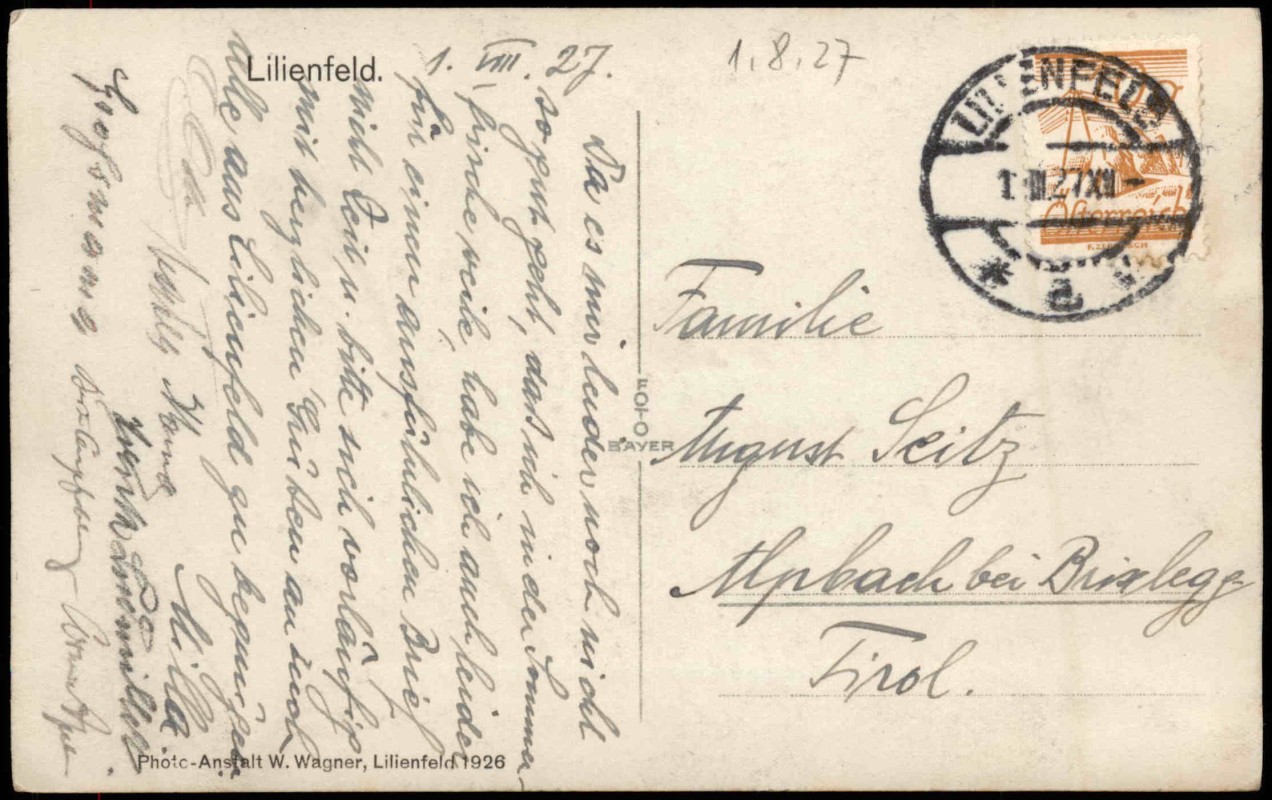 Lilienfeld.
1. VIII. 27.
Da es mir leider noch nicht
so gut geht, daß ich in der Sommer-
frische weile, habe ich auch leider
für einen ausführlichen Brief
nicht Zeit u. bitte sich vorläufig
mit herzlichen Grüßen an euch
alle aus Lilienfeld zu begnügen
Milla.
Hanna
Großmama
Photo-Anstalt W. Wagner, Lilienfeld 1926
FOTO
BAYER
1.8.27
LILIENFELD
1. III 27 XII
* a *
Österreich
Familie
August Seitz
Alpbach bei Brixlegg
Tirol.